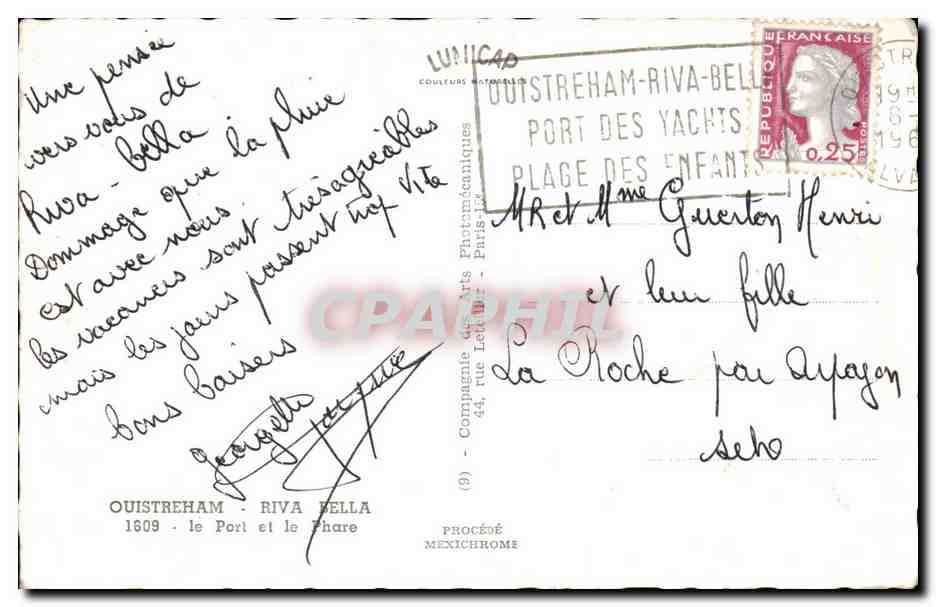 Une pensée
vers vous de
Riva-Bella.
Dommage que la pluie
est avec nous.
les vacances sont très agréables
mais les jours passent trop vite
bons baisers
Georgette
OUISTREHAM - RIVA BELLA
1609 - le Port et le Phare
LUMICAP
COULEURS NATURELLES
(9) - Compagnie des Arts Photomécaniques
44, rue Letellier - Paris-15e
PROCÉDÉ
MEXICHROME
OUISTREHAM-RIVA-BELL
PORT DES YACHTS
PLAGE DES ENFANTS
REPUBLIQUE FRANÇAISE
0,25
POSTES
MR et Mme Guerton Henri
et leur fille
La Roche par Arpajon
CPAPHIL